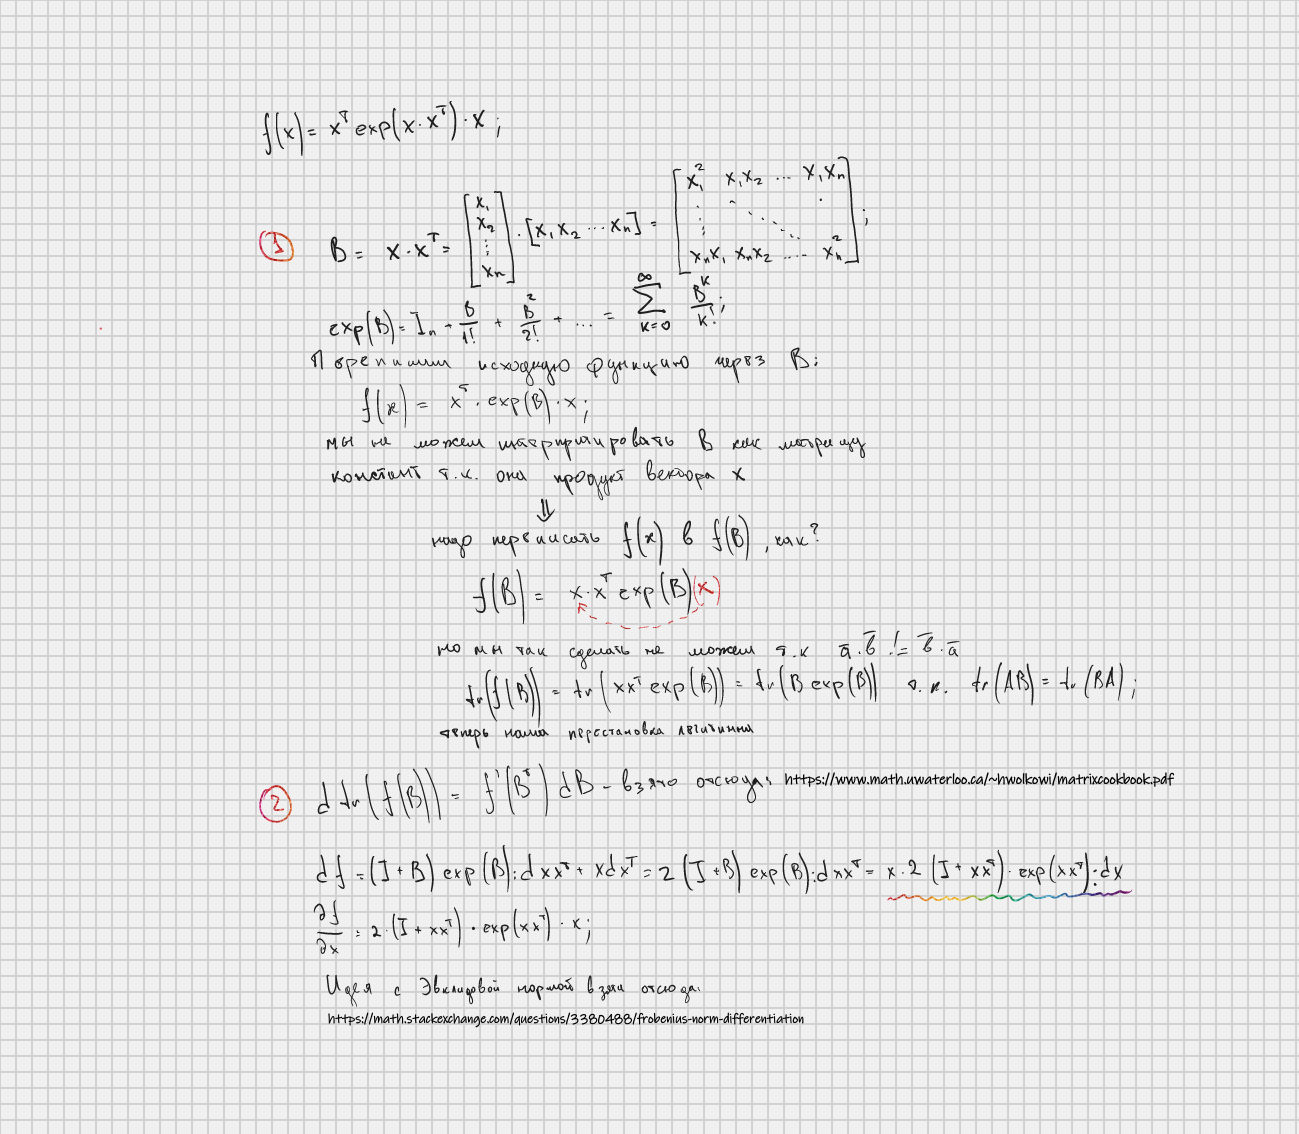 f(x) = xᵀ exp(x·xᵀ)·x ;
① B = x·xᵀ = [x₁ x₂ ⋮ xₙ]·[x₁ x₂ ⋯ xₙ] = [x₁² x₁x₂ ⋯ x₁xₙ ⋮ ⋱ xₙx₁ xₙx₂ ⋯ xₙ²] ;
exp(B) = Iₙ + B/1! + B²/2! + ... = ∑_{k=0}^{∞} Bᵏ/k! ;
Перепишим исходную функцию через B:
f(x) = xᵀ · exp(B) · x ;
мы не можем B как матрицу
констант т.к. она продукт вектора x
⇓
надо переписать f(x) в f(B), как?
f(B) = x·xᵀ exp(B)(x)
но мы так сделать не можем т.к a̅·b̅ != b̅·a̅
tr(f(B)) = tr(xxᵀ exp(B)) = tr(B exp(B)) т.к. tr(AB) = tr(BA) ;
теперь наша перестановка легитимна
② d tr(f(B)) = f'(Bᵀ) dB – взято отсюда: https://www.math.uwaterloo.ca/~hwolkowi/matrixcookbook.pdf
df = (I + B) exp(B) : dxxᵀ + xdxᵀ = 2 (I + B) exp(B) : dxxᵀ = x·2 (I + xxᵀ)·exp(xxᵀ) : dx
∂f/∂x = 2·(I + xxᵀ)·exp(xxᵀ)·x ;
Идея с Эвклидовой нормой взята отсюда:
https://math.stackexchange.com/questions/3380488/frobenius-norm-differentiation